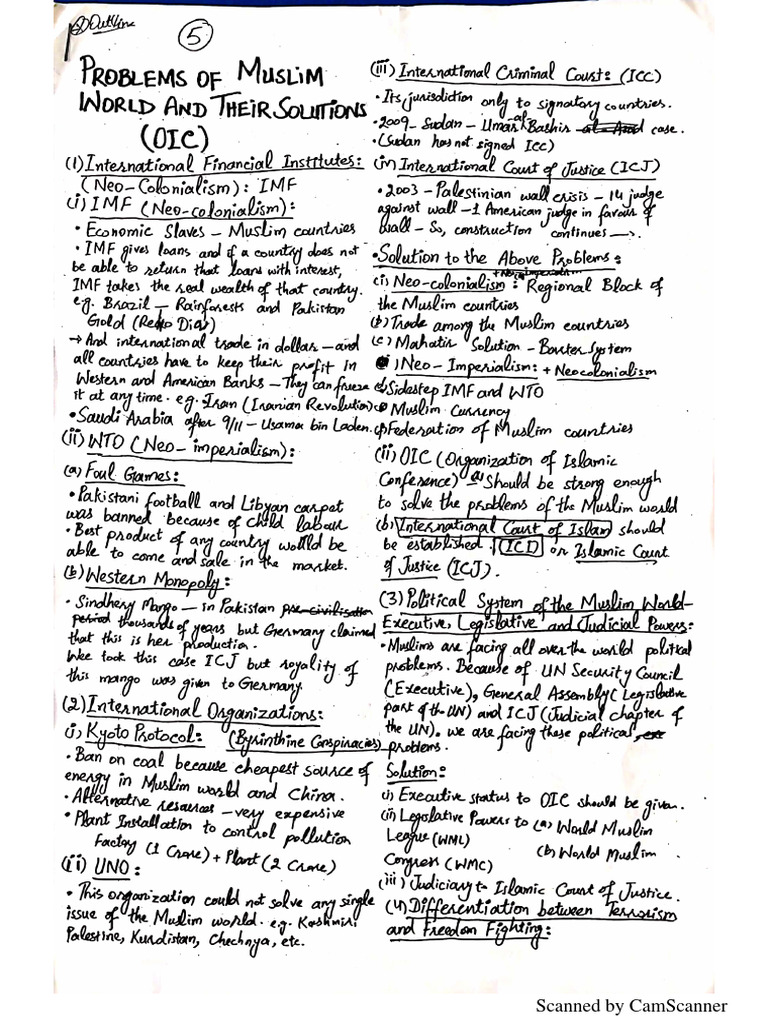 Outline
5
PROBLEMS OF MUSLIM
WORLD AND THEIR SOLUTIONS
(OIC)
(1) International Financial Institutes:
(Neo-Colonialism): IMF
(i) IMF (Neo-colonialism):
• Economic Slaves - Muslim countries
• IMF gives loans and if a country does not
be able to return that loans with interest,
IMF takes the real wealth of that country.
e.g. Brazil - Rainforests and Pakistan
Gold (Reko Diq)
→ And international trade in dollar - and
all countries have to keep their profit in
Western and American Banks - They can freeze
it at any time. e.g. Iran (Iranian Revolution)
• Saudi Arabia after 9/11 - Usama bin Laden.
(ii) WTO (Neo-imperialism):
(a) Foul Games:
• Pakistani football and Libyan carpet
was banned because of child labour
• Best product of any country would be
able to come and sale in the market.
(b) Western Monopoly:
• Sindhery Mango - in Pakistan pre-civilisation
period thousands of years but Germany claimed
that this is her production.
Wee took this case ICJ but royality of
this mango was given to Germany.
(2) International Organizations:
(i) Kyoto Protocol: (Byrinthine Conspiracies)
• Ban on coal because cheapest source of
energy in Muslim world and China.
• Alternative resources - very expensive
• Plant Installation to control pollution
Factory (1 Crore) + Plant (2 Crore)
(ii) UNO:
• This organization could not solve any single
issue of the Muslim world. e.g. Kashmir,
Palestine, Kurdistan, Chechnya, etc.
(iii) International Criminal Court: (ICC)
• Its jurisdiction only to signatory countries.
• 2009 - Sudan - Umar al Bashir case.
• (Sudan has not signed ICC)
(iv) International Court of Justice (ICJ)
• 2003 - Palestinian wall crisis - 14 judge
against wall - 1 American judge in favour of
wall - So, construction continues →.
• Solution to the Above Problems:
(i) Neo-colonialism: Regional Block of
the Muslim countries
(b) Trade among the Muslim countries
(c) Mahatir Solution - Barter System
) Neo-Imperialism: + Neocolonialism
Sidestep IMF and WTO
Muslim Currency
Federation of Muslim countries
(ii) OIC (Organization of Islamic
Conference) (a) Should be strong enough
to solve the problems of the Muslim world
(b) International Court of Islam should
be established. (ICI) or Islamic Court
of Justice (ICJ).
(3) Political System of the Muslim World-
Executive, Legislative and Judicial Powers:
• Muslims are facing all over the world political
problems. Because of UN Security Council
(Executive), General Assembly (Legislative
part of the UN) and ICJ (Judicial chapter of
the UN). we are facing these political
problems.
Solution:
(i) Executive status to OIC should be given.
(ii) Legislative Powers to (a) World Muslim
League (WML) (b) World Muslim
Congress (WMC)
(iii) Judiciary to Islamic Court of Justice.
(4) Differentiation between Terrorism
and Freedom Fighting:
Scanned by CamScanner